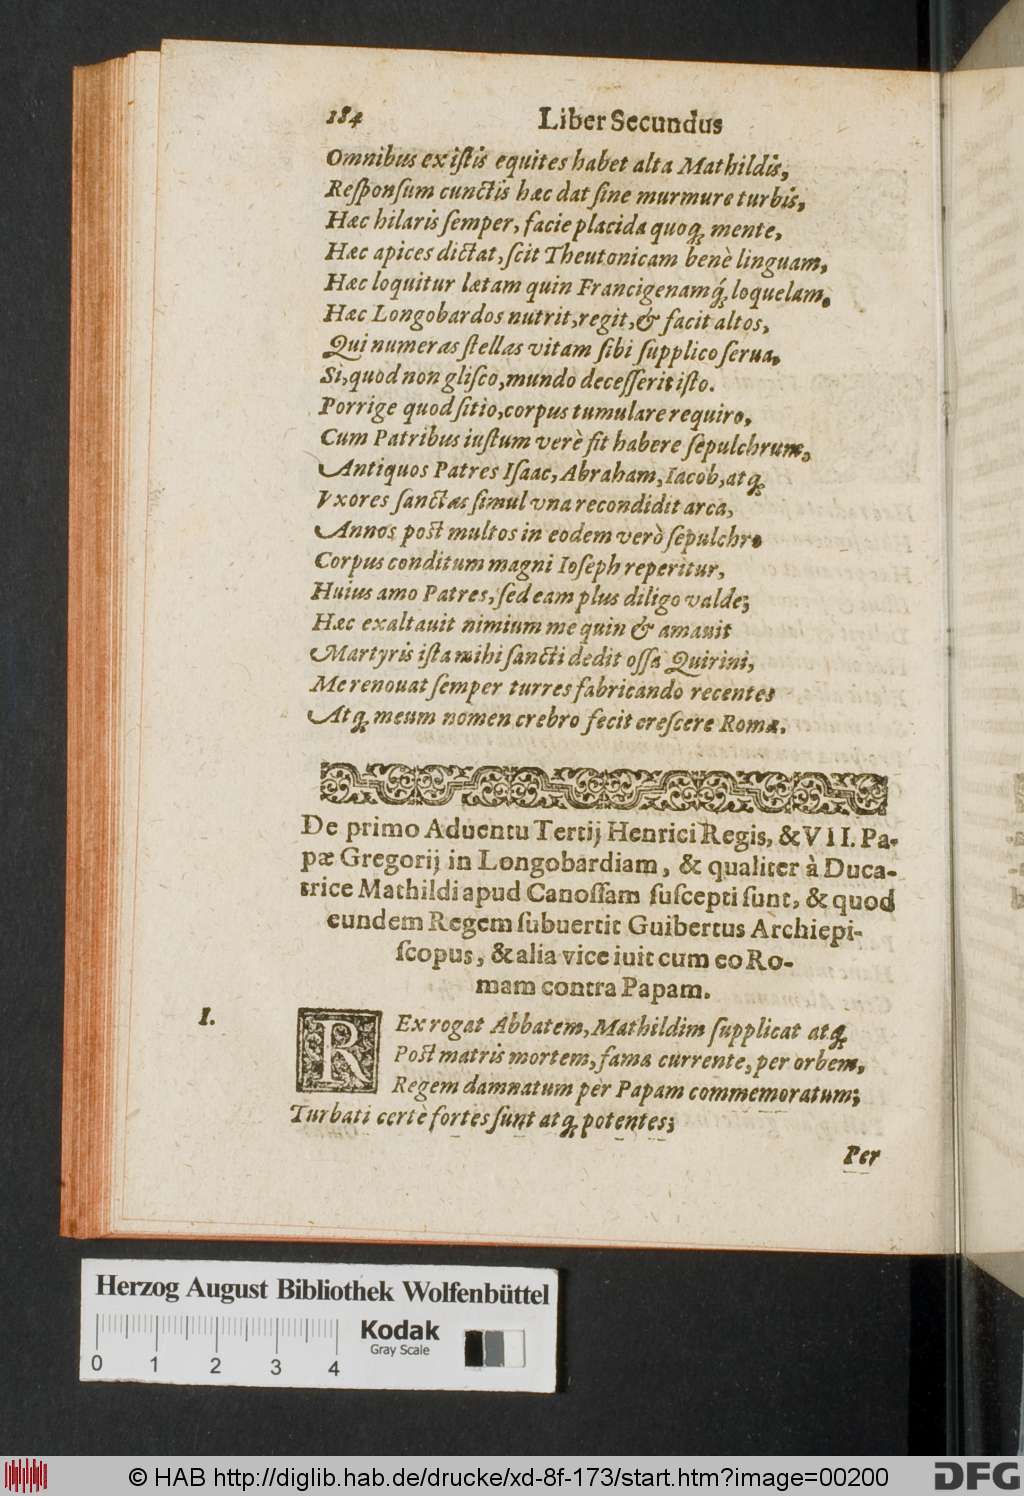 184 Liber Secundus
Omnibus ex iſtis equites habet alta Mathildis,
Reſponſum cunctis hæc dat ſine murmure turbis,
Hæc hilaris ſemper, facie placida quoq; mente,
Hæc apices dictat, ſcit Theutonicam benè linguam,
Hæc loquitur lætam quin Francigenamq́; loquelam,
Hæc Longobardos nutrit, regit, & facit altos,
Qui numeras ſtellas vitam ſibi ſupplico ſerua,
Si, quod non gliſco, mundo deceſſerit iſto.
Porrige quod ſitio, corpus tumulare requiro,
Cum Patribus iuſtum verè ſit habere ſepulchrum,
Antiquos Patres Iſaac, Abraham, Iacob, atq;
Vxores ſanctas ſimul vna recondidit arca,
Annos poſt multos in eodem verò ſepulchro
Corpus conditum magni Ioſeph reperitur,
Huius amo Patres, ſed eam plus diligo valde;
Hæc exaltauit nimium me quin & amauit
Martyris iſta mihi ſancti dedit oſſa Quirini,
Me renouat ſemper turres fabricando recentes
Atq; meum nomen crebro fecit creſcere Romæ.
De primo Aduentu Tertij Henrici Regis, & VII. Pa-
pæ Gregorij in Longobardiam, & qualiter à Duca-
trice Mathildi apud Canoſſam ſuſcepti ſunt, & quod
eundem Regem ſubuertit Guibertus Archiepi-
ſcopus, & alia vice iuit cum eo Ro-
mam contra Papam.
I. REx rogat Abbatem, Mathildim ſupplicat atq;
Poſt matris mortem, fama currente, per orbem,
Regem damnatum per Papam commemoratum;
Turbati certè fortes ſunt atq; potentes;
Per
Herzog August Bibliothek Wolfenbüttel
Kodak
Gray Scale
0 1 2 3 4
© HAB http://diglib.hab.de/drucke/xd-8f-173/start.htm?image=00200
DFG